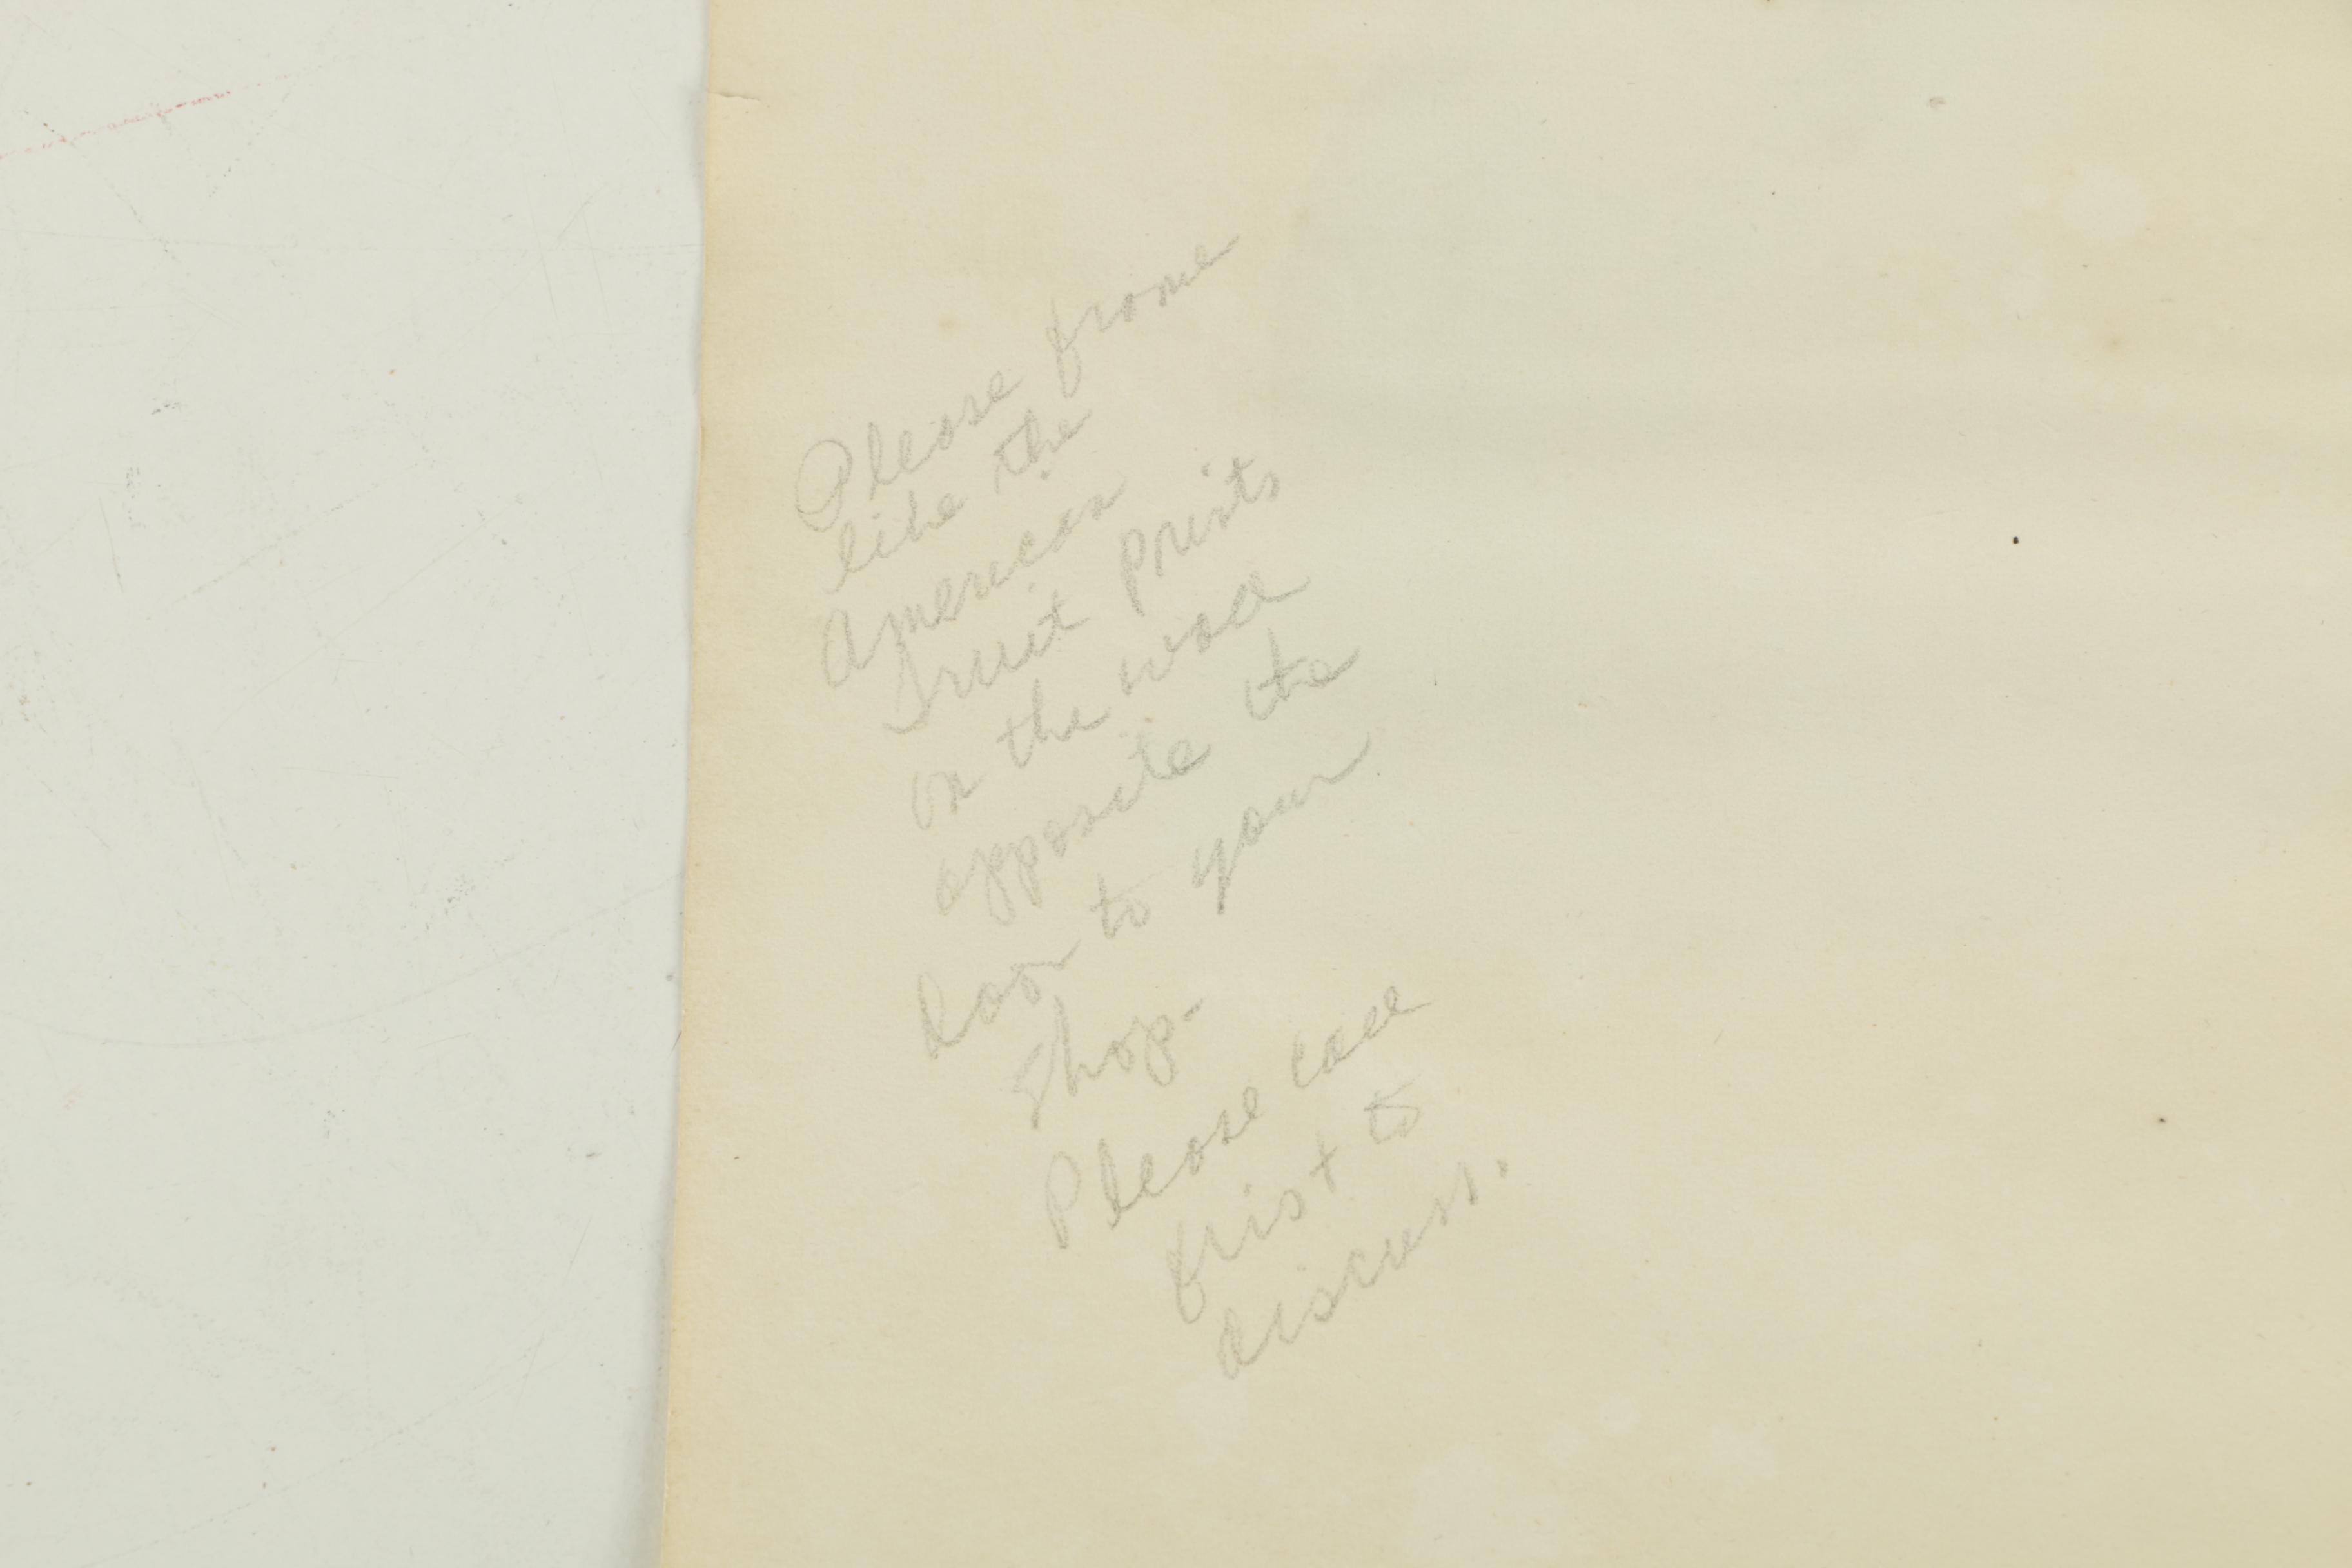 Please frame
like the
American
Fruit prints
on the wall
opposite the
door to your
Shop-
Please call
frist to
discuss.